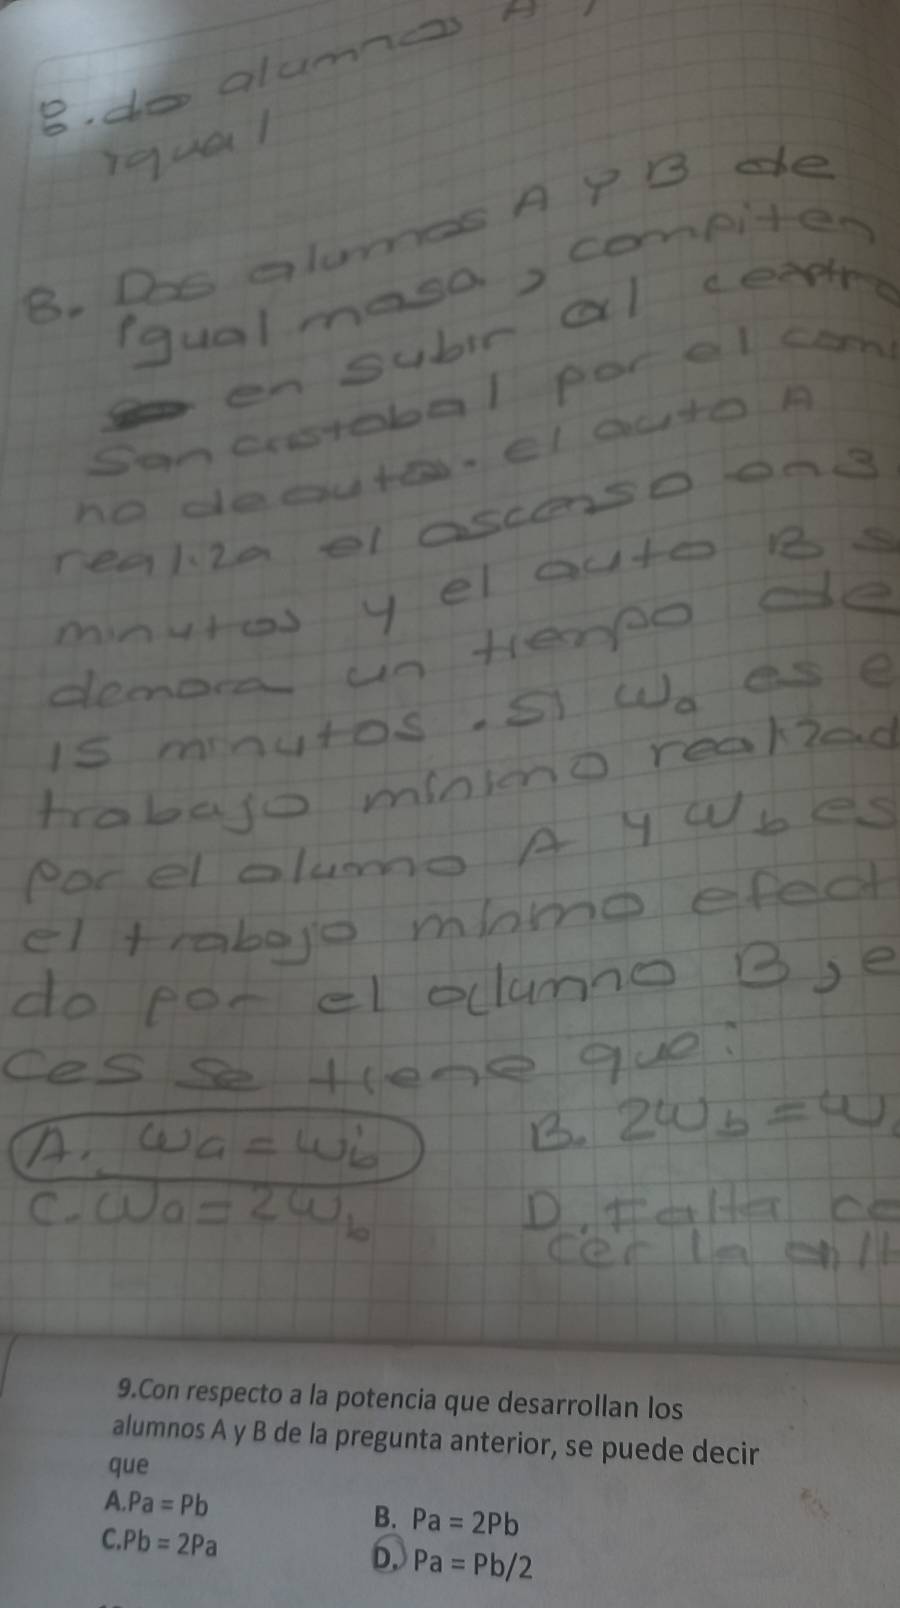 8. do alumnos A
igual
8. Dos alumos A y B de
igual masa, compiten
en subir al cerro
San Cristobal por el cami
no de auto. el auto A
realiza el ascenso en 3
minutos y el auto B s
demora un tiempo de
15 minutos. Si Wa es e
trabajo minimo realizad
por el alumno A y Wb es
el trabajo minmo efect
do por el allumno B, e
ces se tiene que:
A. Wa = Wb
B. 2Wb = W
C. Wa = 2Wb
D. Falta co
cer la alt
9.Con respecto a la potencia que desarrollan los
alumnos A y B de la pregunta anterior, se puede decir
que
A.Pa = Pb
B. Pa = 2Pb
C.Pb = 2Pa
D. Pa = Pb/2